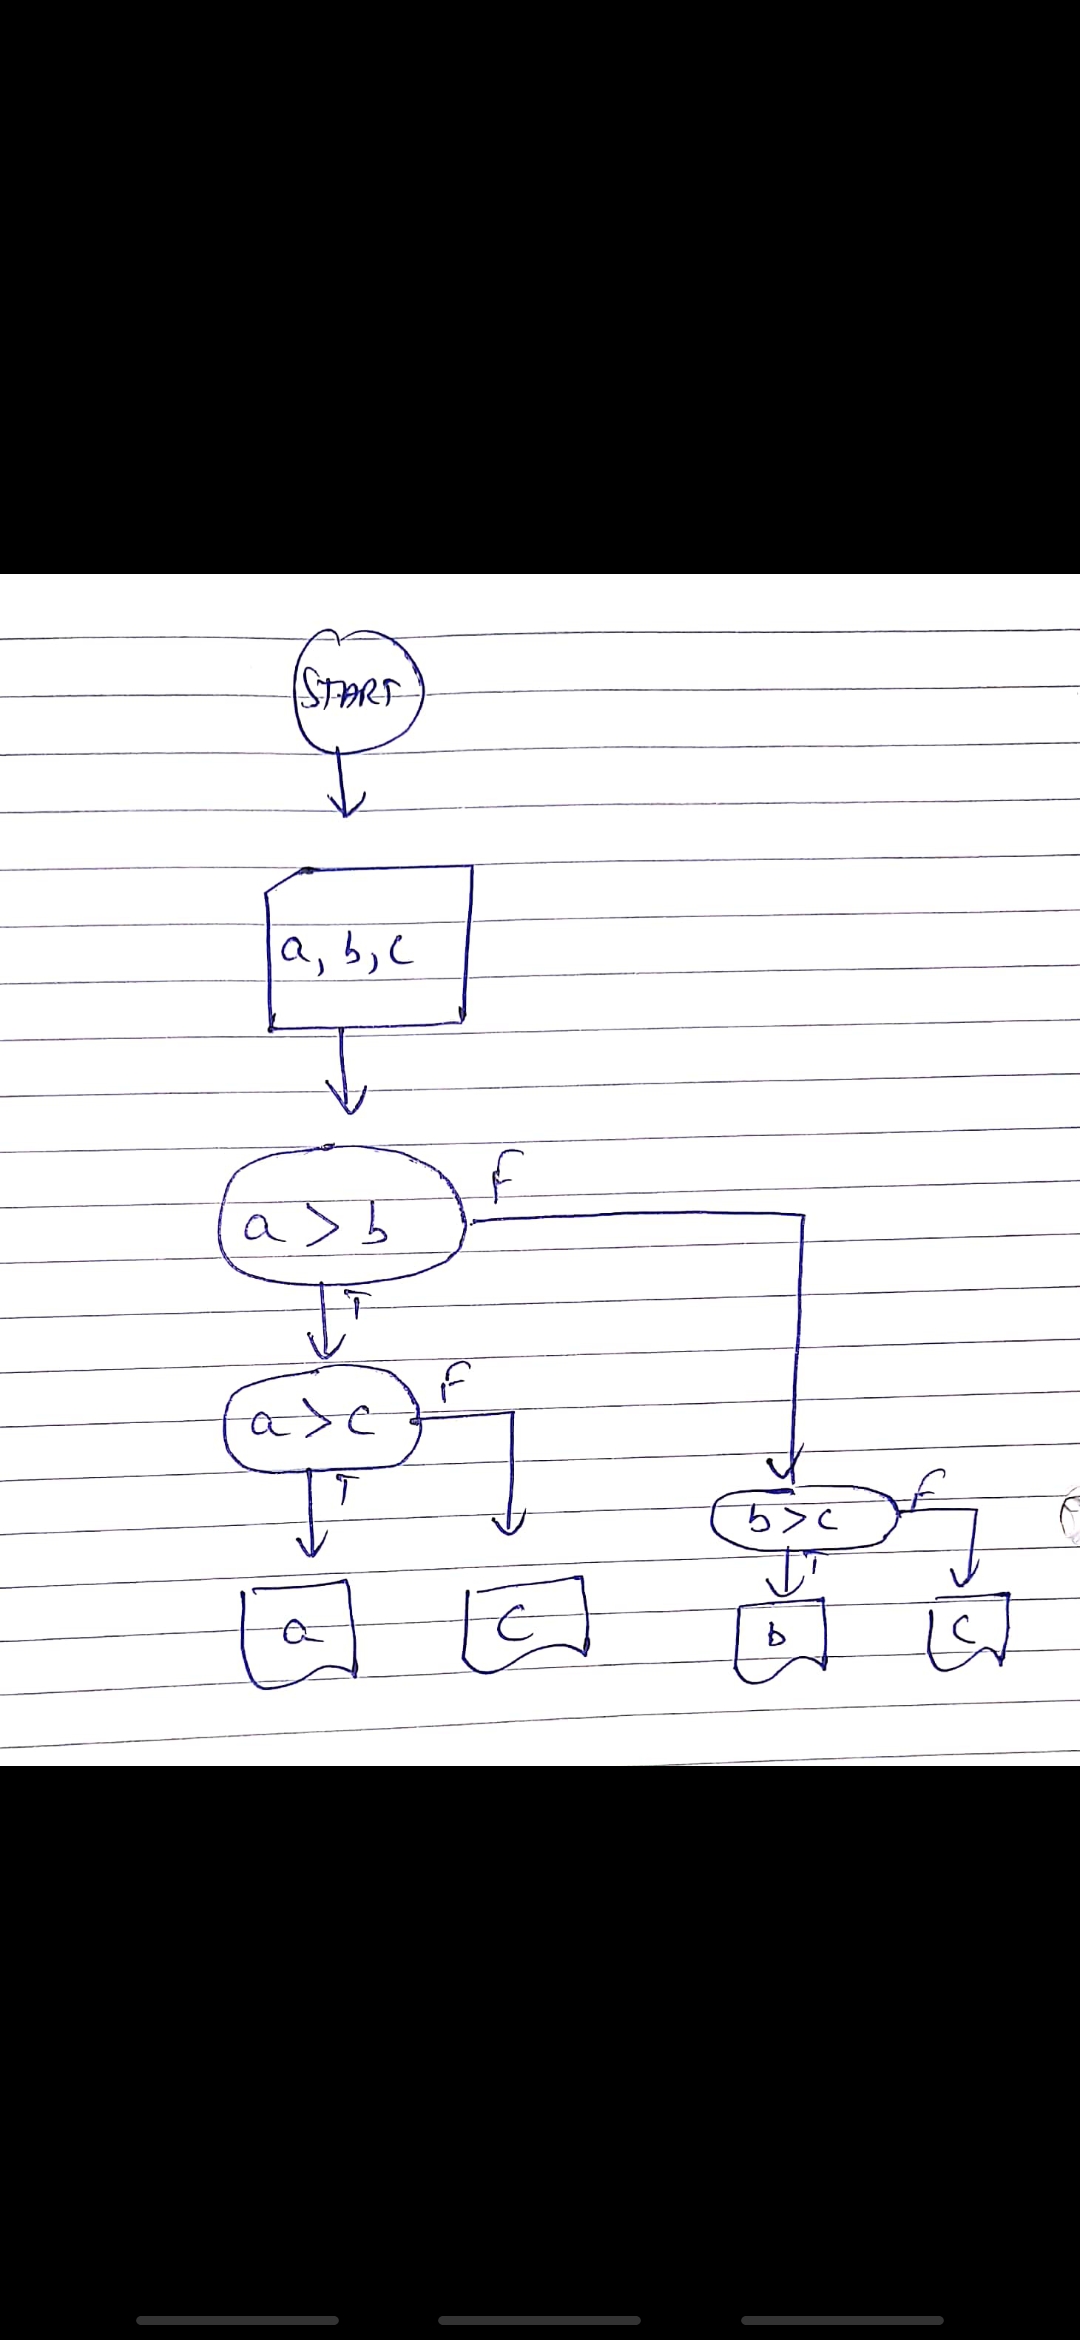 START
a, b, c
a > b
F
T
a > c
F
T
b > c
F
T
a
C
b
C